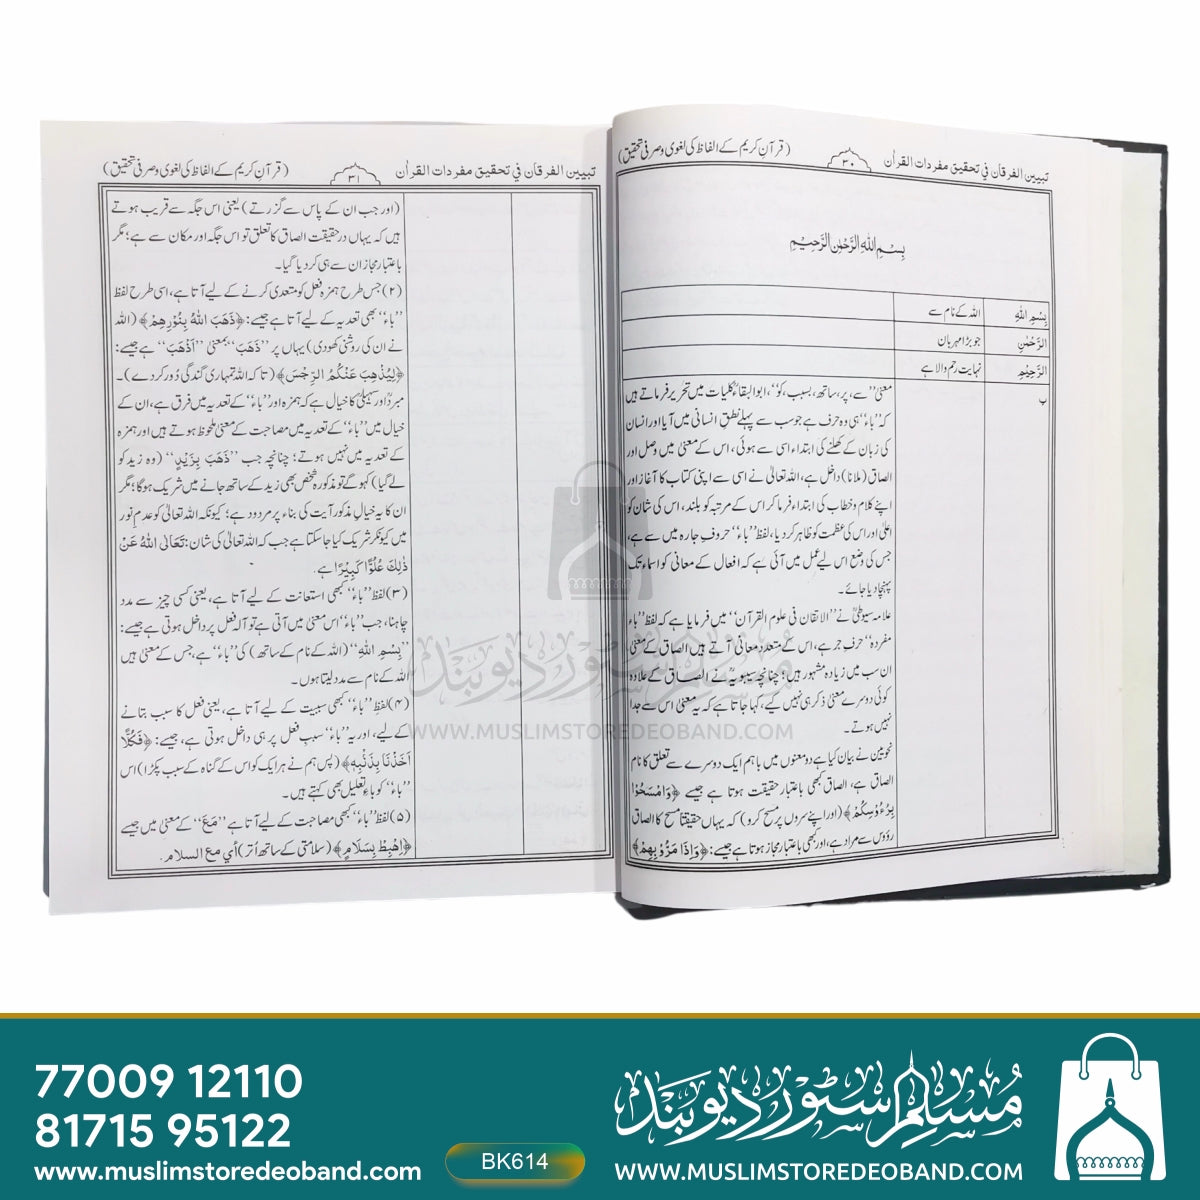 تبیین الفرقان في تحقیق مفردات القرآن
۳۰
(قرآن کریم کے الفاظ کی لغوی وصرفی تحقیق)
بِسْمِ اللهِ الرَّحْمٰنِ الرَّحِیْمِ
بِسْمِ اللهِ اللہ کے نام سے
الرَّحْمٰنِ جو بڑا مہربان
الرَّحِیْمِ نہایت رحم والا ہے
ب
معنیٰ ’’سے، پر، ساتھ، بسبب، کو‘‘، ابوالبقاءؒ کلیات میں تحریر فرماتے ہیں
کہ ’’باء‘‘ ہی وہ حرف ہے جو سب سے پہلے نطقِ انسانی میں آیا اور انسان
کی زبان کے کھلنے کی ابتداء اسی سے ہوئی، اس کے معنیٰ میں وصل اور
الصاق (ملانا) داخل ہے، اللہ تعالیٰ نے اسی سے اپنی کتاب کا آغاز اور
اپنے کلام وخطاب کی ابتداء فرما کر اس کے مرتبہ کو بلند، اس کی شان کو
اعلیٰ اور اس کی عظمت کو ظاہر کر دیا، لفظ ’’باء‘‘ حروفِ جارہ میں سے ہے،
جس کی وضع اس لیے عمل میں آئی ہے کہ افعال کے معانی کو اسماء تک
پہنچا دیا جائے۔
علامہ سیوطیؒ نے ’’الاتقان فی علوم القرآن‘‘ میں فرمایا ہے کہ لفظ ’’باء
مفردہ‘‘ حرفِ جر ہے، اس کے متعدد معانی آتے ہیں الصاق کے معنیٰ
ان سب میں زیادہ مشہور ہیں؛ چنانچہ سیبویہؒ نے الصاق کے علاوہ
کوئی دوسرے معنیٰ ذکر ہی نہیں کیے، کہا جاتا ہے کہ یہ معنیٰ اس سے جدا
نہیں ہوتے۔
نحویین نے بیان کیا ہے دو معنوں میں باہم ایک دوسرے سے تعلق کا نام
الصاق ہے، الصاق کبھی باعتبار حقیقت ہوتا ہے جیسے ﴿وَامْسَحُوْا
بِرُءُوْسِكُمْ﴾ (اور اپنے سروں پر مسح کرو) کہ یہاں حقیقتاً مسح کا الصاق
رؤوس سے مراد ہے، اور کبھی باعتبار مجاز ہوتا ہے جیسے: ﴿وَاِذَا مَرُّوْا بِهِمْ﴾
تبیین الفرقان في تحقیق مفردات القرآن
۳۱
(قرآن کریم کے الفاظ کی لغوی وصرفی تحقیق)
(اور جب ان کے پاس سے گزرتے) یعنی اس جگہ سے قریب ہوتے
ہیں کہ یہاں در حقیقت الصاق کا تعلق تو اس جگہ اور مکان سے ہے؛ مگر
باعتبار مجاز ان سے ہی کر دیا گیا۔
(۲) جس طرح ہمزہ فعل کو متعدی کرنے کے لیے آتا ہے، اسی طرح لفظ
’’باء‘‘ بھی تعدیہ کے لیے آتا ہے جیسے: ﴿ذَهَبَ اللهُ بِنُوْرِهِمْ﴾ (اللہ
نے ان کی روشنی کھودی) یہاں پر ’’ذَهَبَ‘‘ بمعنیٰ ’’اَذْهَبَ‘‘ ہے جیسے:
﴿لِيُذْهِبَ عَنْكُمُ الرِّجْسَ﴾ (تاکہ اللہ تمہاری گندگی دُور کر دے)۔
مبردؒ اور سہیلیؒ کا خیال ہے کہ ہمزہ اور ’’باء‘‘ کے تعدیہ میں فرق ہے، ان کے
خیال میں ’’باء‘‘ کے تعدیہ میں مصاحبت کے معنیٰ ملحوظ ہوتے ہیں اور ہمزہ
کے تعدیہ میں نہیں ہوتے؛ چنانچہ جب ’’ذَهَبَ بِزَيْدٍ‘‘ (وہ زید کو
لے گیا) کہو گے تو مذکورہ شخص بھی زید کے ساتھ جانے میں شریک ہوگا؛ مگر
ان کا یہ خیال مذکور آیت کی بناء پر مردود ہے؛ کیونکہ اللہ تعالیٰ کو عدم نور
میں کیونکر شریک کیا جاسکتا ہے جب کہ اللہ تعالیٰ کی شان: تَعَالَى اللهُ عَنْ
ذٰلِكَ عُلُوًّا كَبِيْرًا ہے۔
(۳) لفظ ’’باء‘‘ کبھی استعانت کے لیے آتا ہے، یعنی کسی چیز سے مدد
چاہنا، جب ’’باء‘‘ اس معنیٰ میں آتی ہے تو آلہ فعل پر داخل ہوتی ہے جیسے:
’’بِسْمِ اللهِ‘‘ (اللہ کے نام کے ساتھ) کی ’’باء‘‘ ہے، جس کے معنیٰ ہیں
اللہ کے نام سے مدد لیتا ہوں۔
(۴) لفظ ’’باء‘‘ کبھی سببیت کے لیے آتا ہے، یعنی فعل کا سبب بتانے
کے لیے، اور یہ ’’باء‘‘ سببِ فعل پر ہی داخل ہوتی ہے، جیسے: ﴿فَكُلًّا
اَخَذْنَا بِذَنْبِهٖ﴾ (پس ہم نے ہر ایک کو اس کے گناہ کے سبب پکڑا) اس
’’باء‘‘ کو باءِ تعلیل بھی کہتے ہیں۔
(۵) لفظ ’’باء‘‘ کبھی مصاحبت کے لیے آتا ہے ’’مَعَ‘‘ کے معنیٰ میں جیسے
﴿اهْبِطْ بِسَلَامٍ﴾ (سلامتی کے ساتھ اُتر) أي مع السلام.
مسلم سٹور دیوبند
WWW.MUSLIMSTOREDEOBAND.COM
77009 12110
81715 95122
www.muslimstoredeoband.com
BK614
مسلم سٹور دیوبند
WWW.MUSLIMSTOREDEOBAND.COM